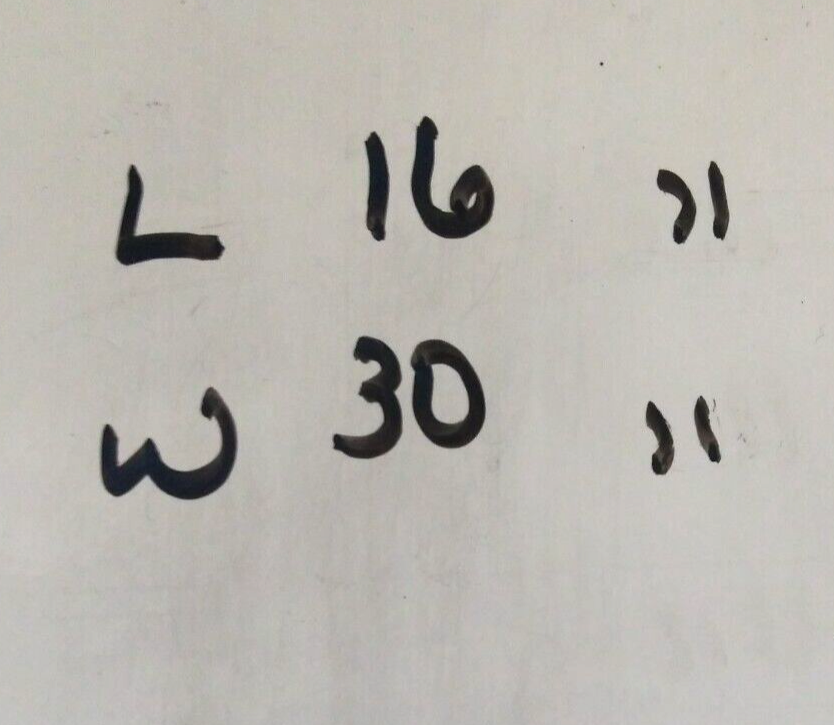 L 16 "
W 30 "